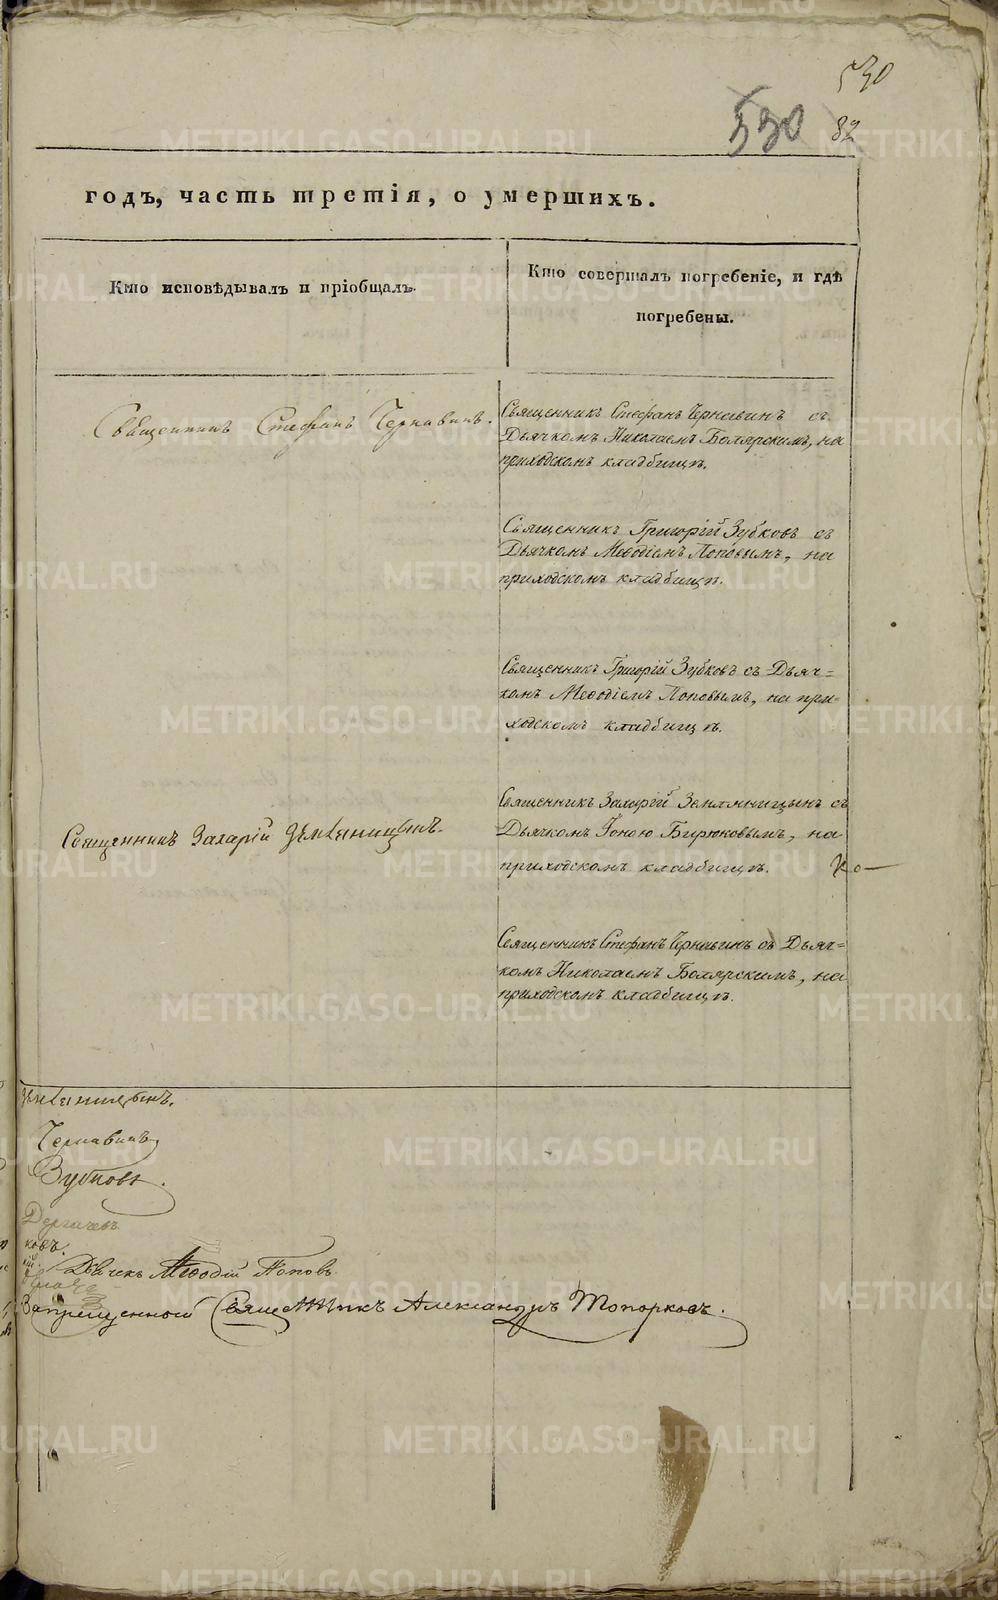 530
530 82
годъ, часть третія, о умершихъ.
Кто исповѣдывалъ и пріобщалъ.
Кто совершалъ погребеніе, и гдѣ
погребены.
Священникъ Стефанъ Чернавинъ.
Священникъ Стефанъ Чернавинъ съ
Дьячкомъ Николаемъ Боярскимъ, на
приходскомъ кладбищѣ.
Священникъ Григорій Зубковъ съ
Дьячкомъ Меѳодіемъ Поповымъ, на
приходскомъ кладбищѣ.
Священникъ Григорій Зубковъ съ Дьяч=
комъ Меѳодіемъ Поповымъ, на при-
ходскомъ кладбищѣ.
Священникъ Захарій Земляницынъ.
Священникъ Захарій Земляницынъ съ
Дьячкомъ Іоною Бирюковымъ, на
приходскомъ кладбищѣ.
Священникъ Стефанъ Чернавинъ съ Дьяч=
комъ Николаемъ Боярскимъ, на
приходскомъ кладбищѣ.
Земляницынъ.
Чернавинъ
Зубковъ.
ковъ.
Дьячекъ Меѳодій Поповъ
Запрещенной Священникъ Александръ Топорковъ.
METRIKI.GASO-URAL.RU